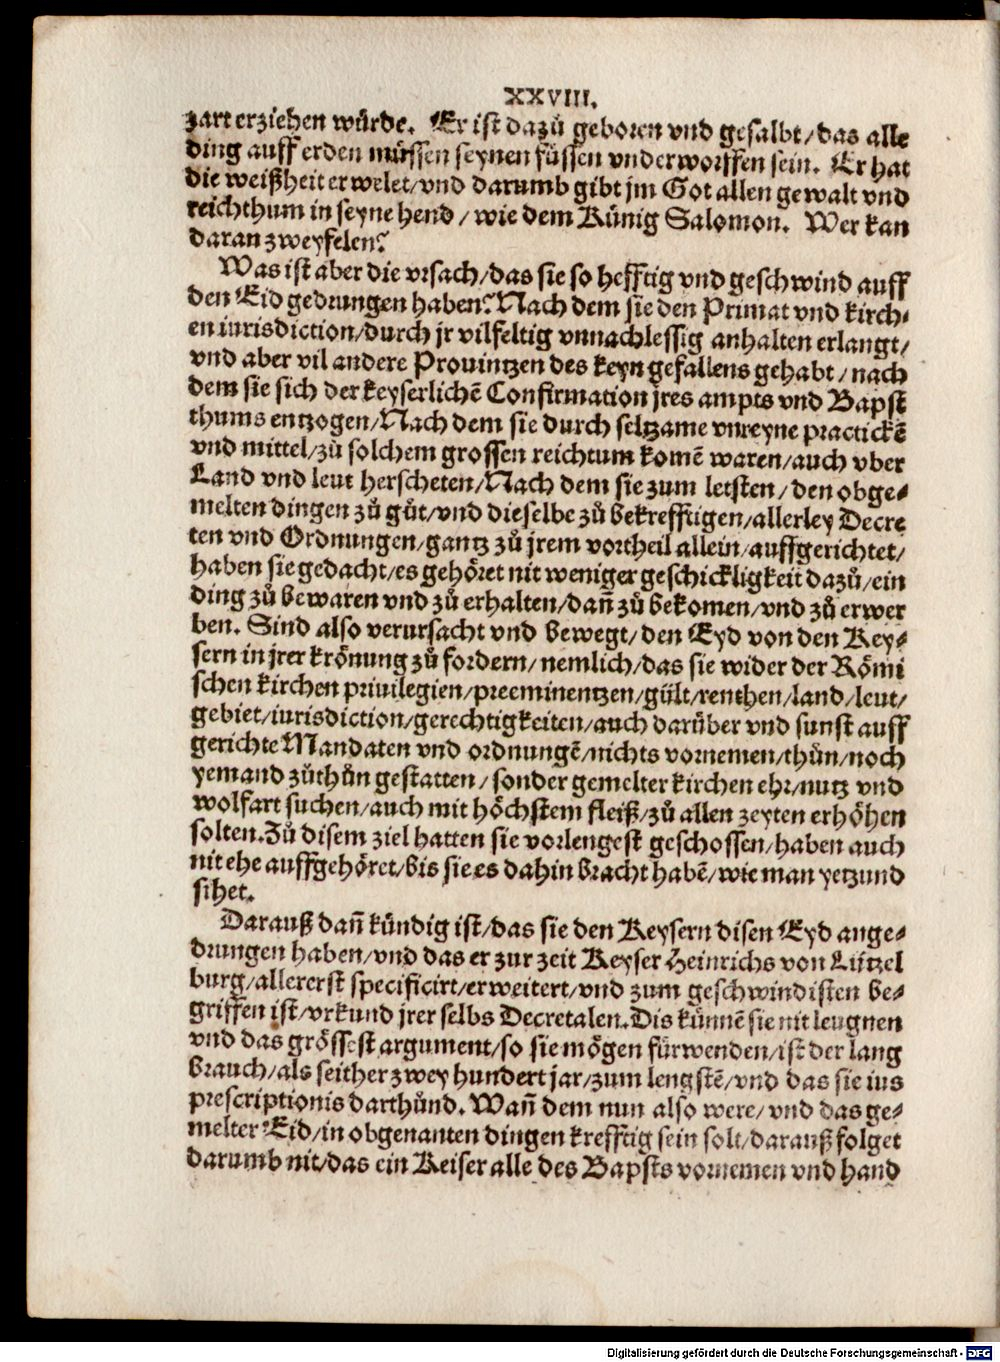 XXVIII.
zart erziehen wůrde. Er ist dazů geboren vnd gesalbt/das alle
ding auff erden müssen seynen füssen vnderworffen sein. Er hat
die weißheit erwelet/vnd darumb gibt jm Got allen gewalt vnd
reichthum in seyne hend/wie dem Künig Salomon. Wer kan
daran zweyfelen?
Was ist aber die vrsach/das sie so hefftig vnd geschwind auff
den Eid gedrungen haben? Nach dem sie den Primat vnd kirch⸗
en iurisdiction/durch jr vilfeltig vnnachlessig anhalten erlangt/
vnd aber vil andere Prouintzen des keyn gefallens gehabt/nach
dem sie sich der keyserlichē Confirmation jres ampts vnd Bapst
thums entzogen/Nach dem sie durch seltzame vnreyne practickē
vnd mittel/zů solchem grossen reichtum komē waren/auch vber
Land vnd leut herscheten/Nach dem sie zum letsten/den obge⸗
melten dingen zů gůt/vnd dieselbe zů bekrefftigen/allerley Decre
ten vnd Ordnungen/gantz zů jrem vortheil allein/auffgerichtet/
haben sie gedacht/es gehöret nit weniger geschickligkeit dazů/ein
ding zů bewaren vnd zů erhalten/dañ zů bekomen/vnd zů erwer
ben. Sind also verursacht vnd bewegt/den Eyd von den Key⸗
sern in jrer krönung zů fordern/nemlich/das sie wider der Römi
schen kirchen priuilegien/preeminentzen/gült/renthen/land/leut/
gebiet/iurisdiction/gerechtigkeiten/auch darüber vnd sunst auff
gerichte Mandaten vnd ordnungē/nichts vornemen/thůn/noch
yemand zůthůn gestatten/sonder gemelter kirchen ehr/nutz vnd
wolfart suchen/auch mit höchstem fleiß/zů allen zeyten erhöhen
solten. Zů disem ziel hatten sie vorlengest geschossen/haben auch
nit ehe auffgehöret/bis sie es dahin bracht habē/wie man yetzund
sihet.
Darauß dañ kündig ist/das sie den Keysern disen Eyd ange⸗
drungen haben/vnd das er zur zeit Keyser Heinrichs von Lützel
burg/allererst specificirt/erweitert/vnd zum geschwindisten be⸗
griffen ist/vrkund jrer selbs Decretalen. Dis künnē sie nit leugnen
vnd das grössest argument/so sie mögen fürwenden/ist der lang
brauch/als seither zwey hundert jar/zum lengstē/vnd das sie ius
prescriptionis darthůnd. Wañ dem nun also were/vnd das ge⸗
melter Eid/in obgenanten dingen krefftig sein solt/darauß folget
darumb nit/das ein Keiser alle des Bapsts vornemen vnd hand
Digitalisierung gefördert durch die Deutsche Forschungsgemeinschaft - DFG